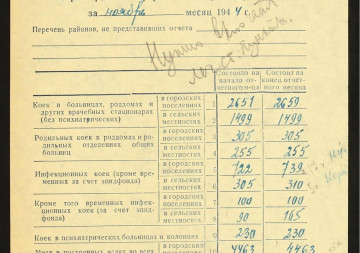 за ноябрь месяц 1944 г.
Перечень районов, не представивших отчета
Состояло на начало отчетного м-ца
Состоит на конец отчетного месяца
Коек в больницах, роддомах и других врачебных стационарах (без психиатрических)
в городских поселениях 1 2651 2659
в сельских местностях 2 1499 1499
Родильных коек в роддомах и родильных отделениях общих больниц
в городских поселениях 3 305 305
в сельских местностях 4 255 255
Инфекционных коек (кроме временных за счет эпидфонда)
в городских поселениях 5 722 739
в сельских местностях 6 305 310
Кроме того временных инфекционных коек (за счет эпидфонда)
в городских поселениях 7 100 100
в сельских местностях 8 90 165
Коек в психиатрических больницах и колониях 9 230 230
в городских поселениях 10 4463 4463